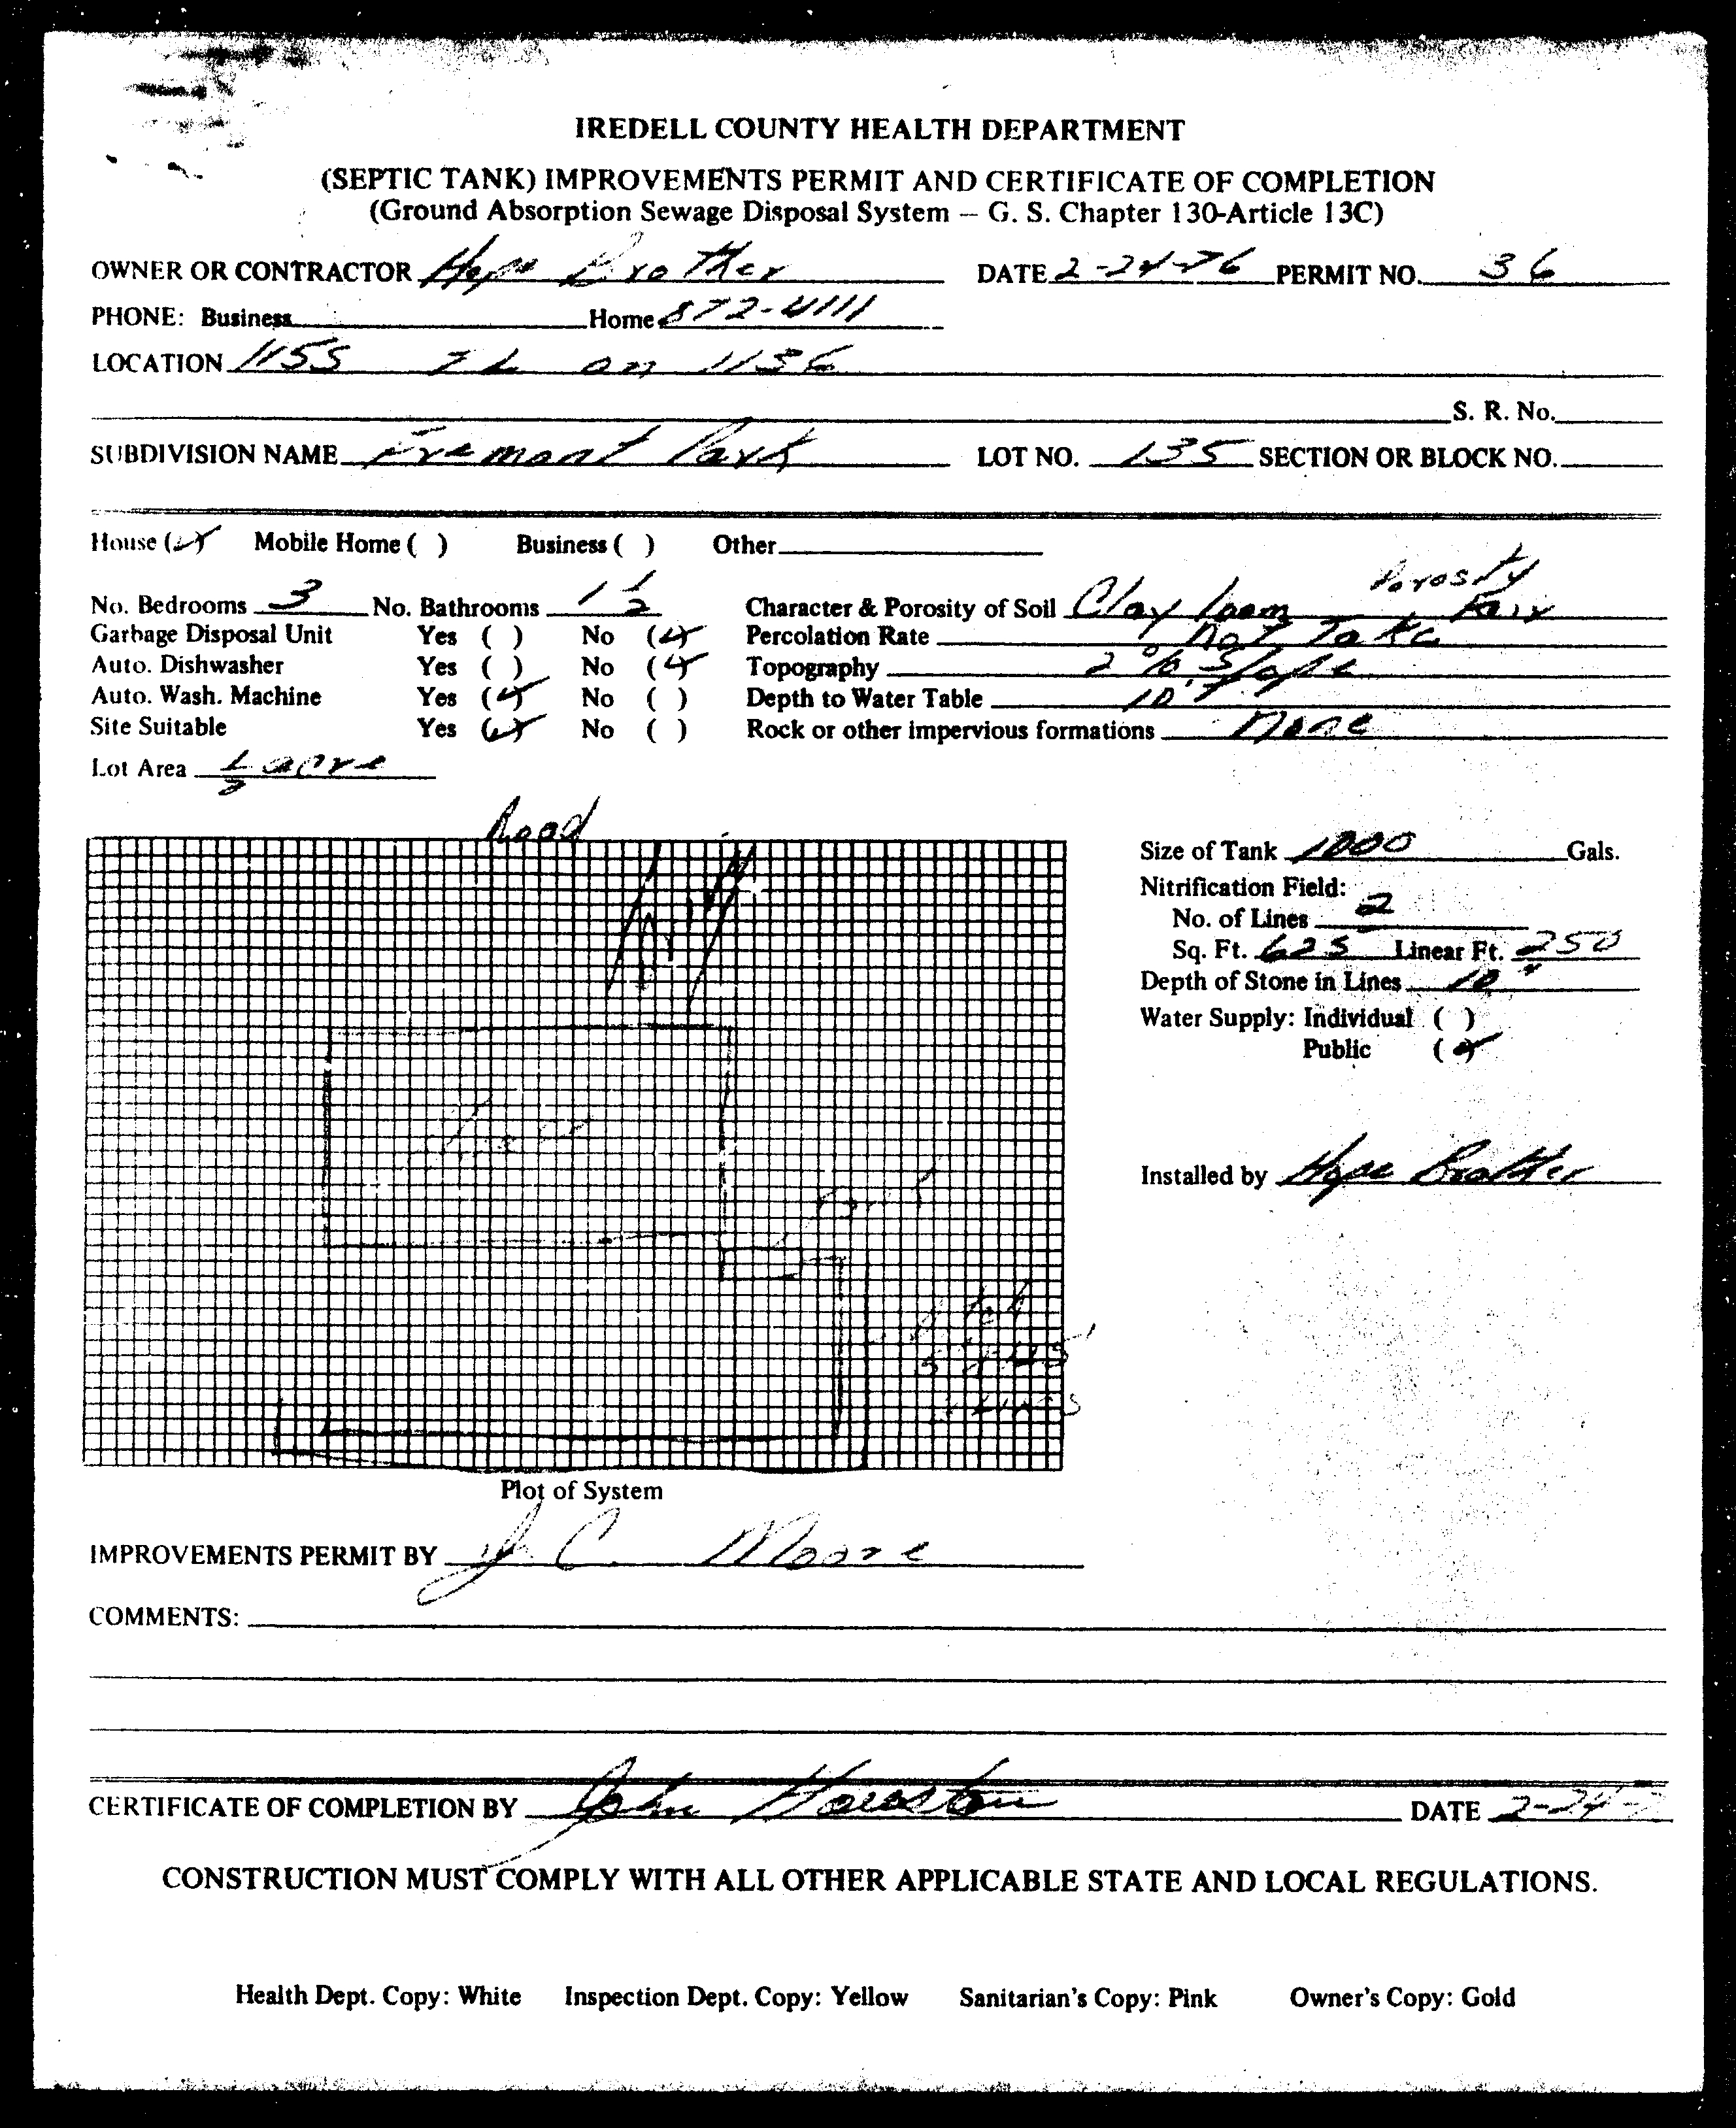 IREDELL COUNTY HEALTH DEPARTMENT
(SEPTIC TANK) IMPROVEMENTS PERMIT AND CERTIFICATE OF COMPLETION
(Ground Absorption Sewage Disposal System — G. S. Chapter 130-Article 13C)
OWNER OR CONTRACTOR Hope Brother DATE 2-24-76 PERMIT NO. 36
PHONE: Business Home 872-4111
LOCATION 1155 TL on 1136
S. R. No.
SUBDIVISION NAME Fremont Park LOT NO. 135 SECTION OR BLOCK NO.
House (✓) Mobile Home ( ) Business ( ) Other
Porosity
No. Bedrooms 3 No. Bathrooms 1 1/2 Character & Porosity of Soil Clay loam Fair
Garbage Disposal Unit Yes ( ) No (✓) Percolation Rate not Take
Auto. Dishwasher Yes ( ) No (✓) Topography 2 % Slope
Auto. Wash. Machine Yes (✓) No ( ) Depth to Water Table 10'
Site Suitable Yes (✓) No ( ) Rock or other impervious formations none
Lot Area 1/2 acre
Road
Size of Tank 1000 Gals.
Nitrification Field:
No. of Lines 2
Sq. Ft. 625 Linear Ft. 250
Depth of Stone in Lines 10"
Water Supply: Individual ( )
Public (✓)
Installed by Hope Brother
Plot of System
IMPROVEMENTS PERMIT BY J. C. Moore
COMMENTS:
CERTIFICATE OF COMPLETION BY John Houston DATE 2-24-7
CONSTRUCTION MUST COMPLY WITH ALL OTHER APPLICABLE STATE AND LOCAL REGULATIONS.
Health Dept. Copy: White Inspection Dept. Copy: Yellow Sanitarian's Copy: Pink Owner's Copy: Gold